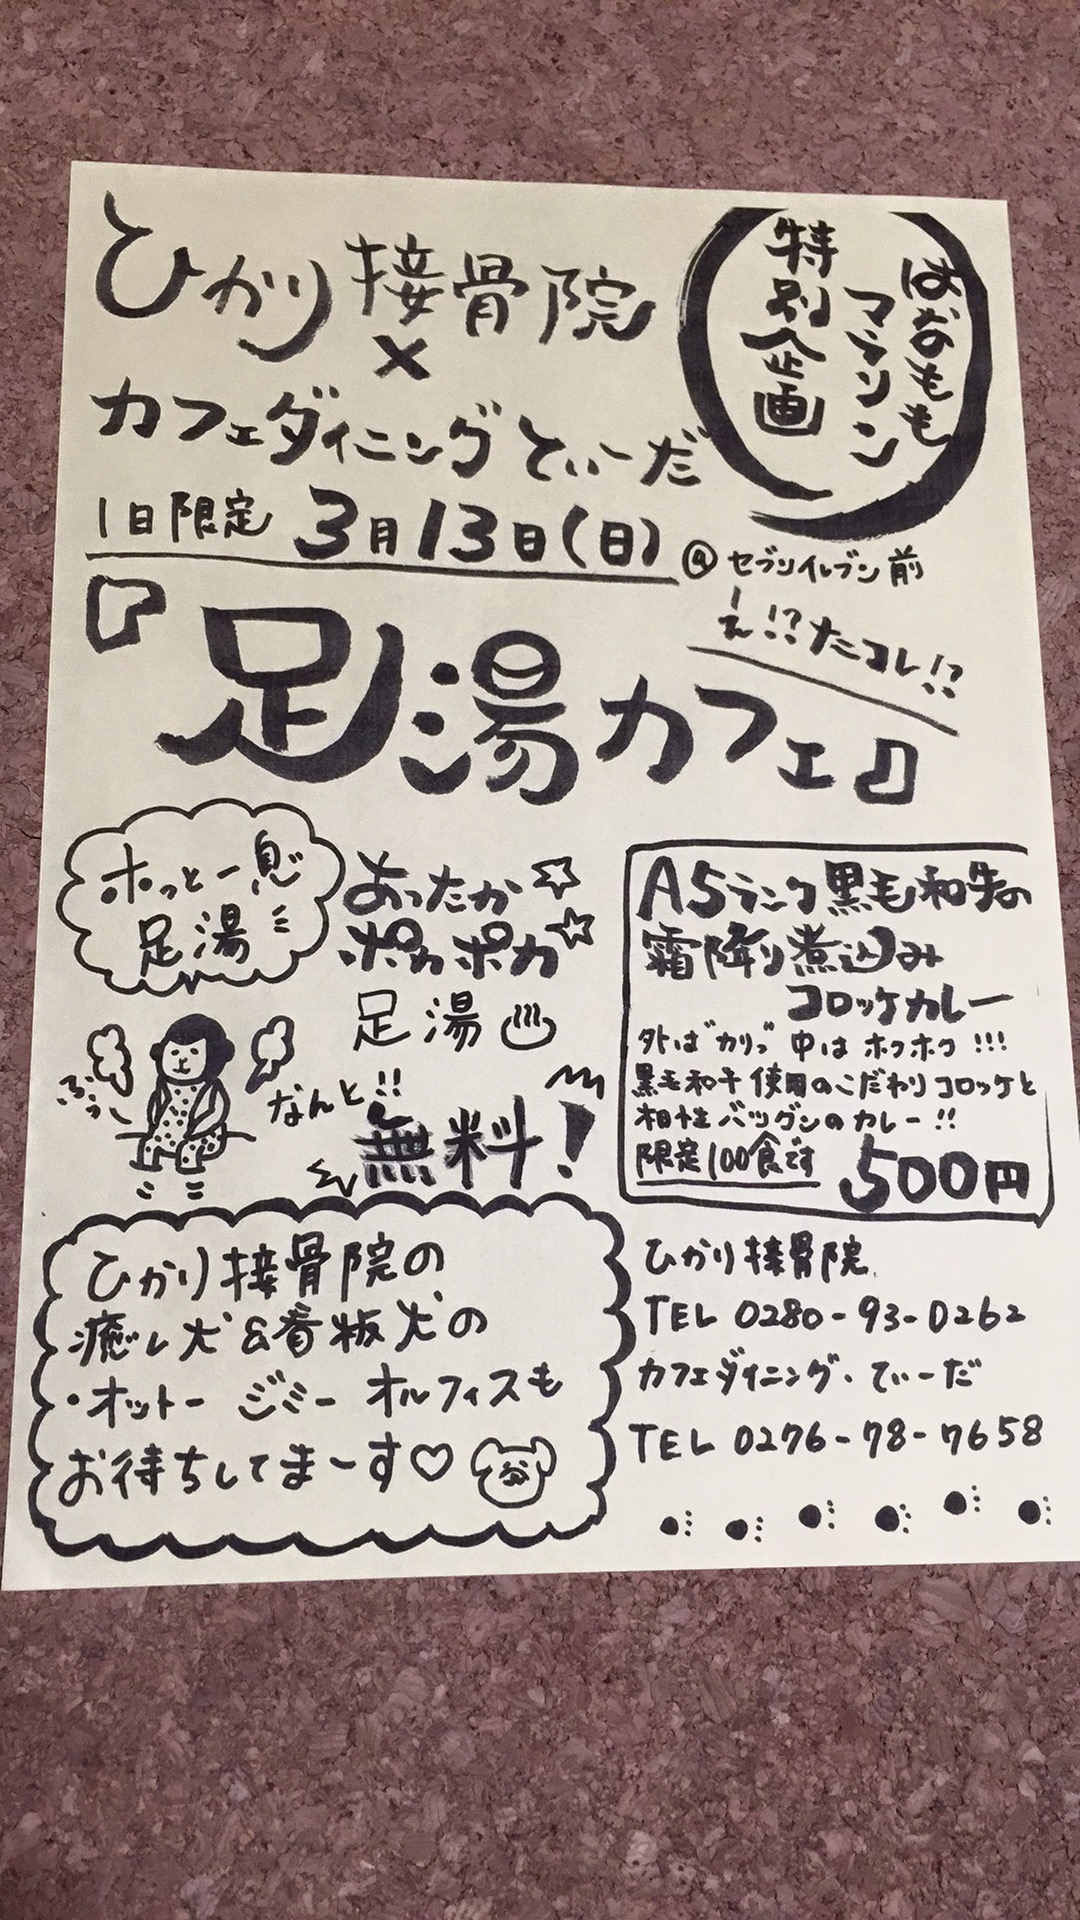 ひかり接骨院
×
カフェダイニングてぃーだ
はなもも
マラソン
特別企画
1日限定 3月13日(日)
@セブンイレブン前
え!?ナニコレ!?
『足湯カフェ』
ホッと一息
足湯
ふぅ〜
あったか☆
ポカポカ☆
足湯♨
なんと!!
無料!
A5ランク黒毛和牛の
霜降り煮込み
コロッケカレー
外は"カリッ"中はホクホク!!!
黒毛和牛使用のこだわりコロッケと
相性バツグンのカレー!!
限定100食です 500円
ひかり接骨院の
癒し犬&看板犬の
・オットー ジミー オルフィスも
お待ちしてまーす♡
ひかり接骨院
TEL 0280-93-0262
カフェダイニング・てぃーだ
TEL 0276-78-7658